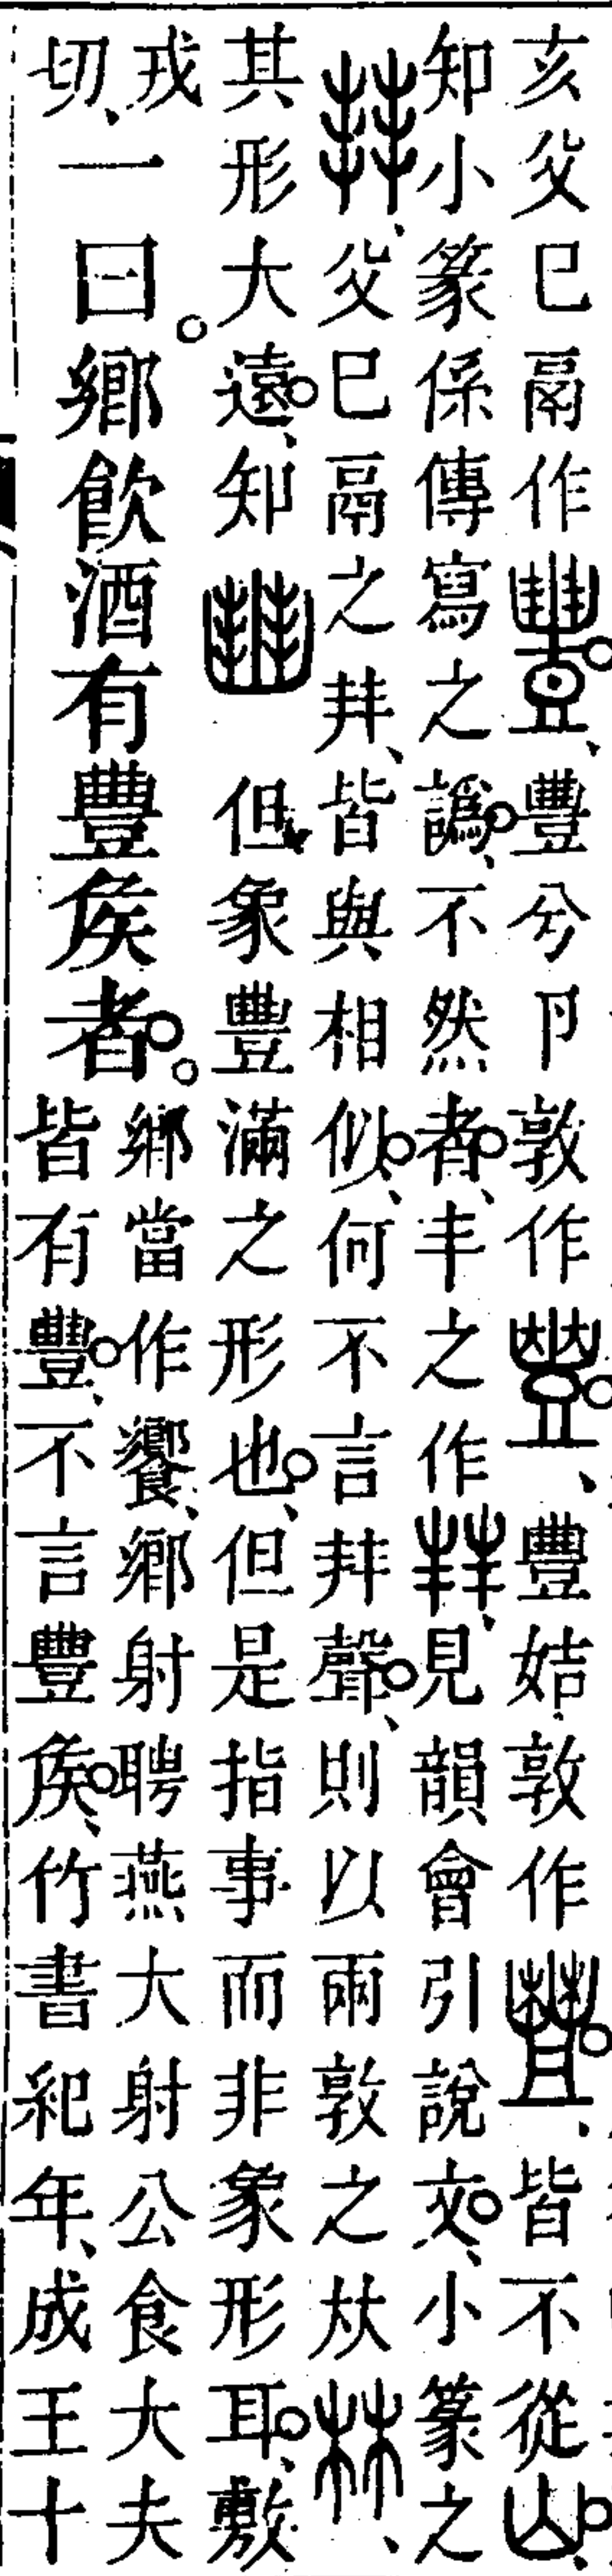 亥父巳鬲作、豐兮卩敦作、豐姞敦作、皆不從山、
知小篆係傳寫之譌、不然者、丰之作、見韻會引說文、小篆之
、父巳鬲之𠦬、皆與相似、何不言𠦬聲、則以兩敦之、
其形大遠、知但象豐滿之形也、但是指事而非象形耳、敷
戎
切、
一曰鄉飲酒有豐矦者。
鄉當作饗、鄉射聘燕大射公食大夫
皆有豐、不言豐矦、竹書紀年、成王十